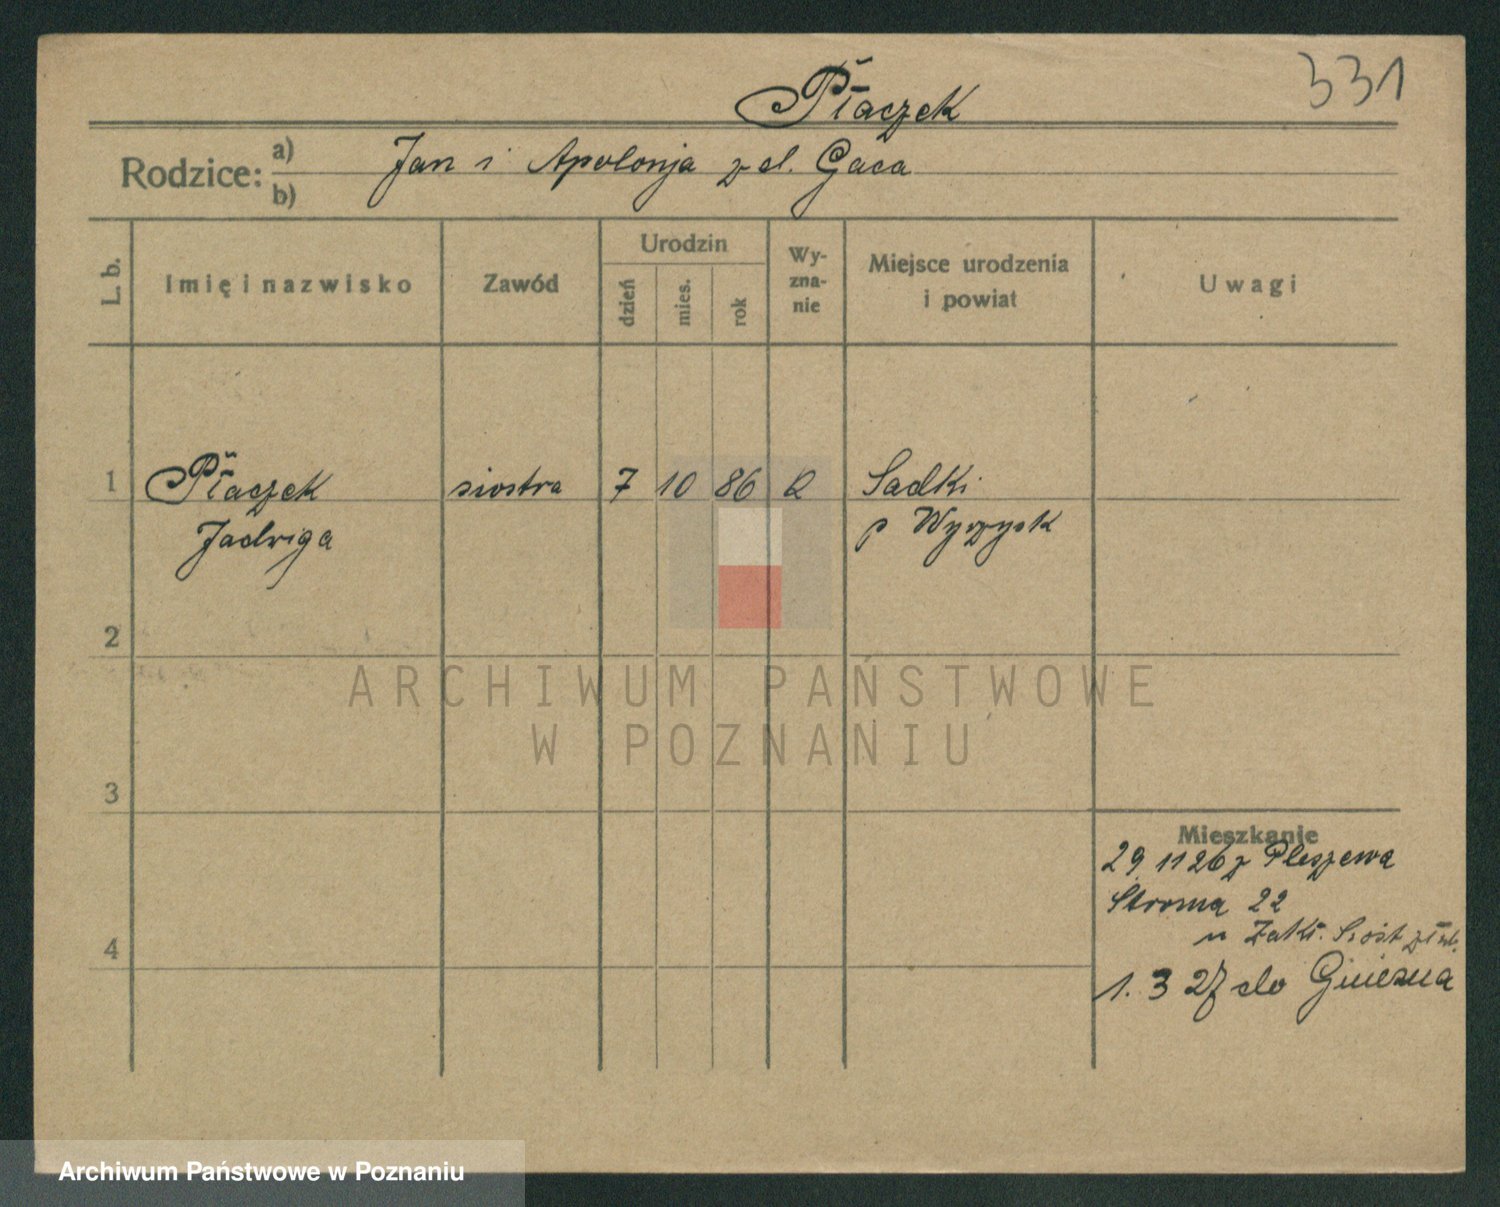 331
Płaczek
Rodzice: a) Jan i Apolonja z d. Gaca
b)
L. b.
Imię i nazwisko
Zawód
Urodzin
dzień
mies.
rok
Wy-
zna-
nie
Miejsce urodzenia
i powiat
Uwagi
1 Płaczek siostra 7 10 86 Sadki
Jadwiga p Wyrzysk
2
ARCHIWUM PAŃSTWOWE
W POZNANIU
3
Mieszkanie
29 11 26 z Pleszewa
Stroma 22
4
1. 3 27 do Gniezna
Archiwum Państwowe w Poznaniu